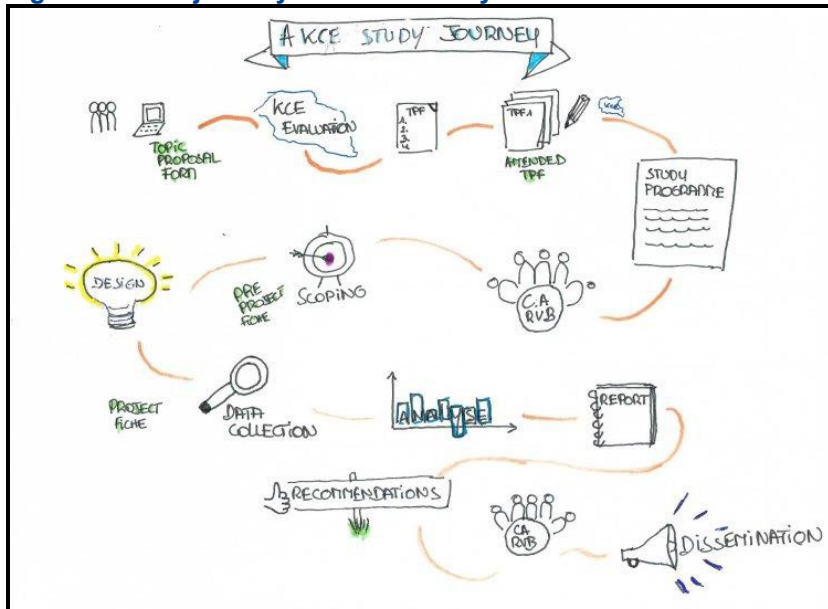 A KCE STUDY JOURNEY
TOPIC
PROPOSAL
FORM
KCE
EVALUATION
TPF
1.
2.
3.
4.
TPF1
AMENDED
TPF
KCE
STUDY
PROGRAMME
DESIGN
PRE
PROJECT
FICHE
SCOPING
C.A
RVB
PROJECT
FICHE
DATA
COLLECTION
ANALYSE
REPORT
RECOMMENDATIONS
CA
RVB
DISSEMINATION